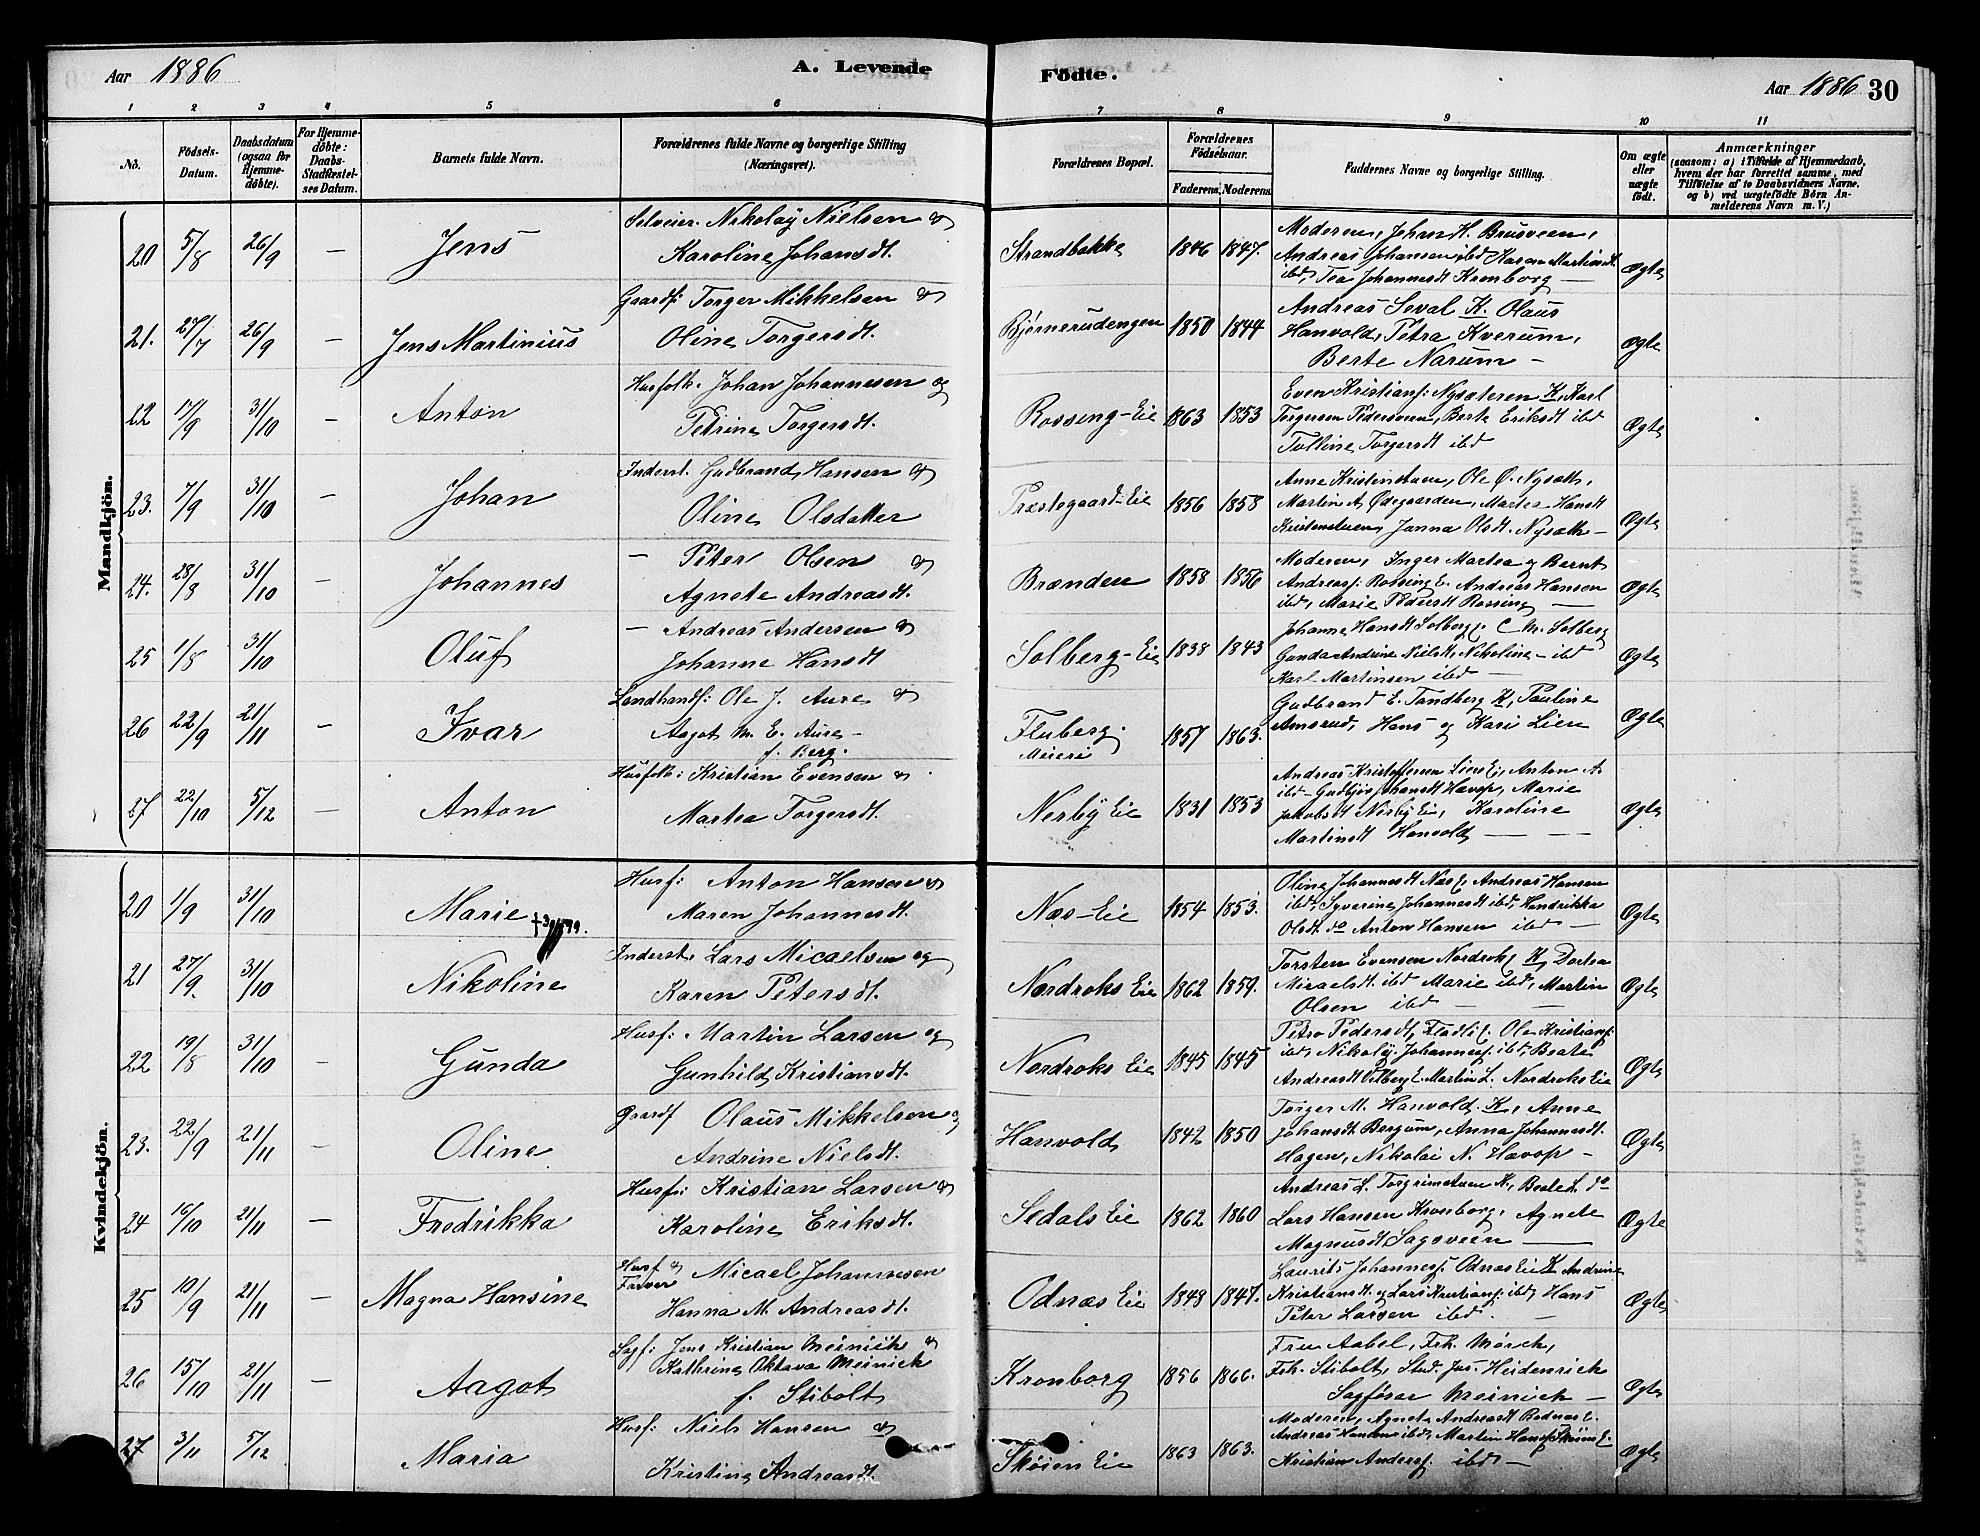 Aar 1886 A. Levende Fødte. Aar 1886 30
1 2 3 4 5 6 7 8 9 10 11
No. Födsels-Datum. Daabsdatum (ogsaa for Hjemme-døbte). For Hjemme-døbte: Daabs-Stadfæstel-ses Datum. Barnets fulde Navn. Forældrenes fulde Navne og borgerlige Stilling (Næringsvei). Forældrenes Bopæl. Forældrenes Fødselsaar. Faderens. Moderens. Faddernes Navne og borgerlige Stilling. Om ægte eller uægte født. Anmærkninger
(saasom: a) i Tilfælde af Hjemmedaab,
hvem der har forrettet samme, med
Tilföielse af to Daabsvidners Navne,
og b) ved uægtefödte Börn An-
melderens Navn m. V.)
Mandkjön.
20 5/8 26/9 — Jens Nikolay Nielsen &
Karoline Johansdt. Strandbakke 1846 1847. Moderen, Johan H. Brusveen,
Andreas Johansen ibd Karen Martinsdt.
ibd, Tea Johannesdt Kronborg — Ægte
21. 27/7 26/9 — Jens Martinius Gaardf: Torger Mikkelsen &
Oline Torgersdt. Bjørnerudengen 1850 1844 Andreas Seval K. Olaus
Hanvold, Petra Kverum,
Berte Narum — Ægte
22 17/9 31/10 — Anton Husfolk. Johan Johannesen og
Petrine Torgersdt. Rossing-Eie 1863 1853 Even Kristians: Nysæteren K, Karl
Torgersen Pedersveen, Berte Eriksdt ibd
Torgersdt ibd Ægte
23. 7/9 31/10 — Johan Inderst. Gudbrand Hansen &
Oline Olsdatter Præstegaard-Eie 1856 1858 Anne Kristenstuen, Ole Ø. Nysæth,
Martin A. Øvegaarden, Martea Hansdt
Kristenstuen, Janna Olsdt. Nysæth — Ægte
24. 28/8 31/10 — Johannes — Peter Olsen &
Agnete Andreasdt. Brænden 1858 1856 Moderen, Inger Martea og Bernt
Andreas: Rossing E. Andreas Hansen
ibd, Marie Pedersdt Rossing — Ægte
25 1/8 31/10 Oluf — Andreas Andersen &
Johanne Hansdt Solberg-Eie 1838 1843 Johanne Hansdt Solberg, C. M. Solberg
Gunda Andrine Nielsdt, Nikoline — ibd
Karl Martinsen ibd — Ægte
26 22/9 21/11 — Ivar Landhandl: Ole J. Aure &
Aagot M. E. Aure —
f. Berg. Fluberg.
Meieri 1857 1863. Gudbrand E. Tandberg K, Pauline
Amsrud, Hans og Kari Lien Ægte
27 22/10 5/12 — Anton Husfolk: Kristian Evensen &
Martea Torgersdt. Nerby Eie 1831 1853 Andreas Kristoffersen Lien Ei, Anton A.
ibd — Johansdt Havop, Marie
Jakobsdt Nerby Ei, Karoline
Martinsdt Hanvold — Ægte
Kvindekjön.
20 1/9 31/10 Marie Husf: Anton Hansen &
Maren Johannesdt. Næs-Eie 1854 1853. Oline Johannesdt Næs E, Andreas Hansen
ibd, Syverine Johannesdt ibd, Hendrikka
Olsdt do Anton Hansen ibd — Ægte
21 27/9. 31/10 Nikoline Inderst. Lars Micaelsen og
Karen Petersdt. Nordroks Eie 1862 1859. Torsten Evensen Nordrok, K, Dortea
Micaelsdt. ibd Marie ibd, Martin
Olsen ibd — Ægte
22 19/8 31/10 — Gunda Husf: Martin Larsen og
Gunhild Kristiansdt. Nordroks Eie 1845 1845 Petra Pedersdt, Ole Kristians:
ibd, Nikolaj Johannes: ibd, Beate
Andreasdt E. Martin L. Nordroks Eie Ægte
23. 22/9 21/11 — Oline Gaardf Olaus Mikkelsen og
Andrine Nielsdt. Hanvold 1842 1850 Torger M. Hanvold. K, Anne
Johansdt Bergum, Anna Johannesdt.
Hagen, Nikolai N. Havop — Ægte
24 16/10 21/11 — Fredrikka Husf: Kristian Larsen &
Karoline Eriksdt. Sedals Eie 1862 1860 Andreas L. Torgrimstuen K, Beate L. do
Lars Hansen Kronborg, Agnete
Magnusdt, Sagsveen — Ægte
25 10/9 21/11 — Magna Hansine Husf &
Farver Micael Johannesen
Hanna M. Andreasdt. Odnæs Eie 1848 1847. Laurits Johannes: Odnæs Eie K Andrine
Kristiansdt og Lars Kristians: ibd, Hans
Peter Larsen ibd. — Ægte
26 15/10 21/11 — Aagot Sagf: Jens Kristian Meinich &
Kathrine Oktava Meinich
f. Stibolt Kronborg 1856 1866. Fru Aabel, Frk. Mörch,
Frk. Stibolt, Stud. Jus. Heidenrich
Sagförer Meinich — Ægte
27 3/11 5/12 Maria Husf: Niels Hansen &
Kristine Andreasdt. Skøien Eie 1863 1863. Moderen, Agnete Andreasdt
Andreas Hansen ibd, Martin Hans: Skøien E.
Kristian Anders: ibd — Ægte